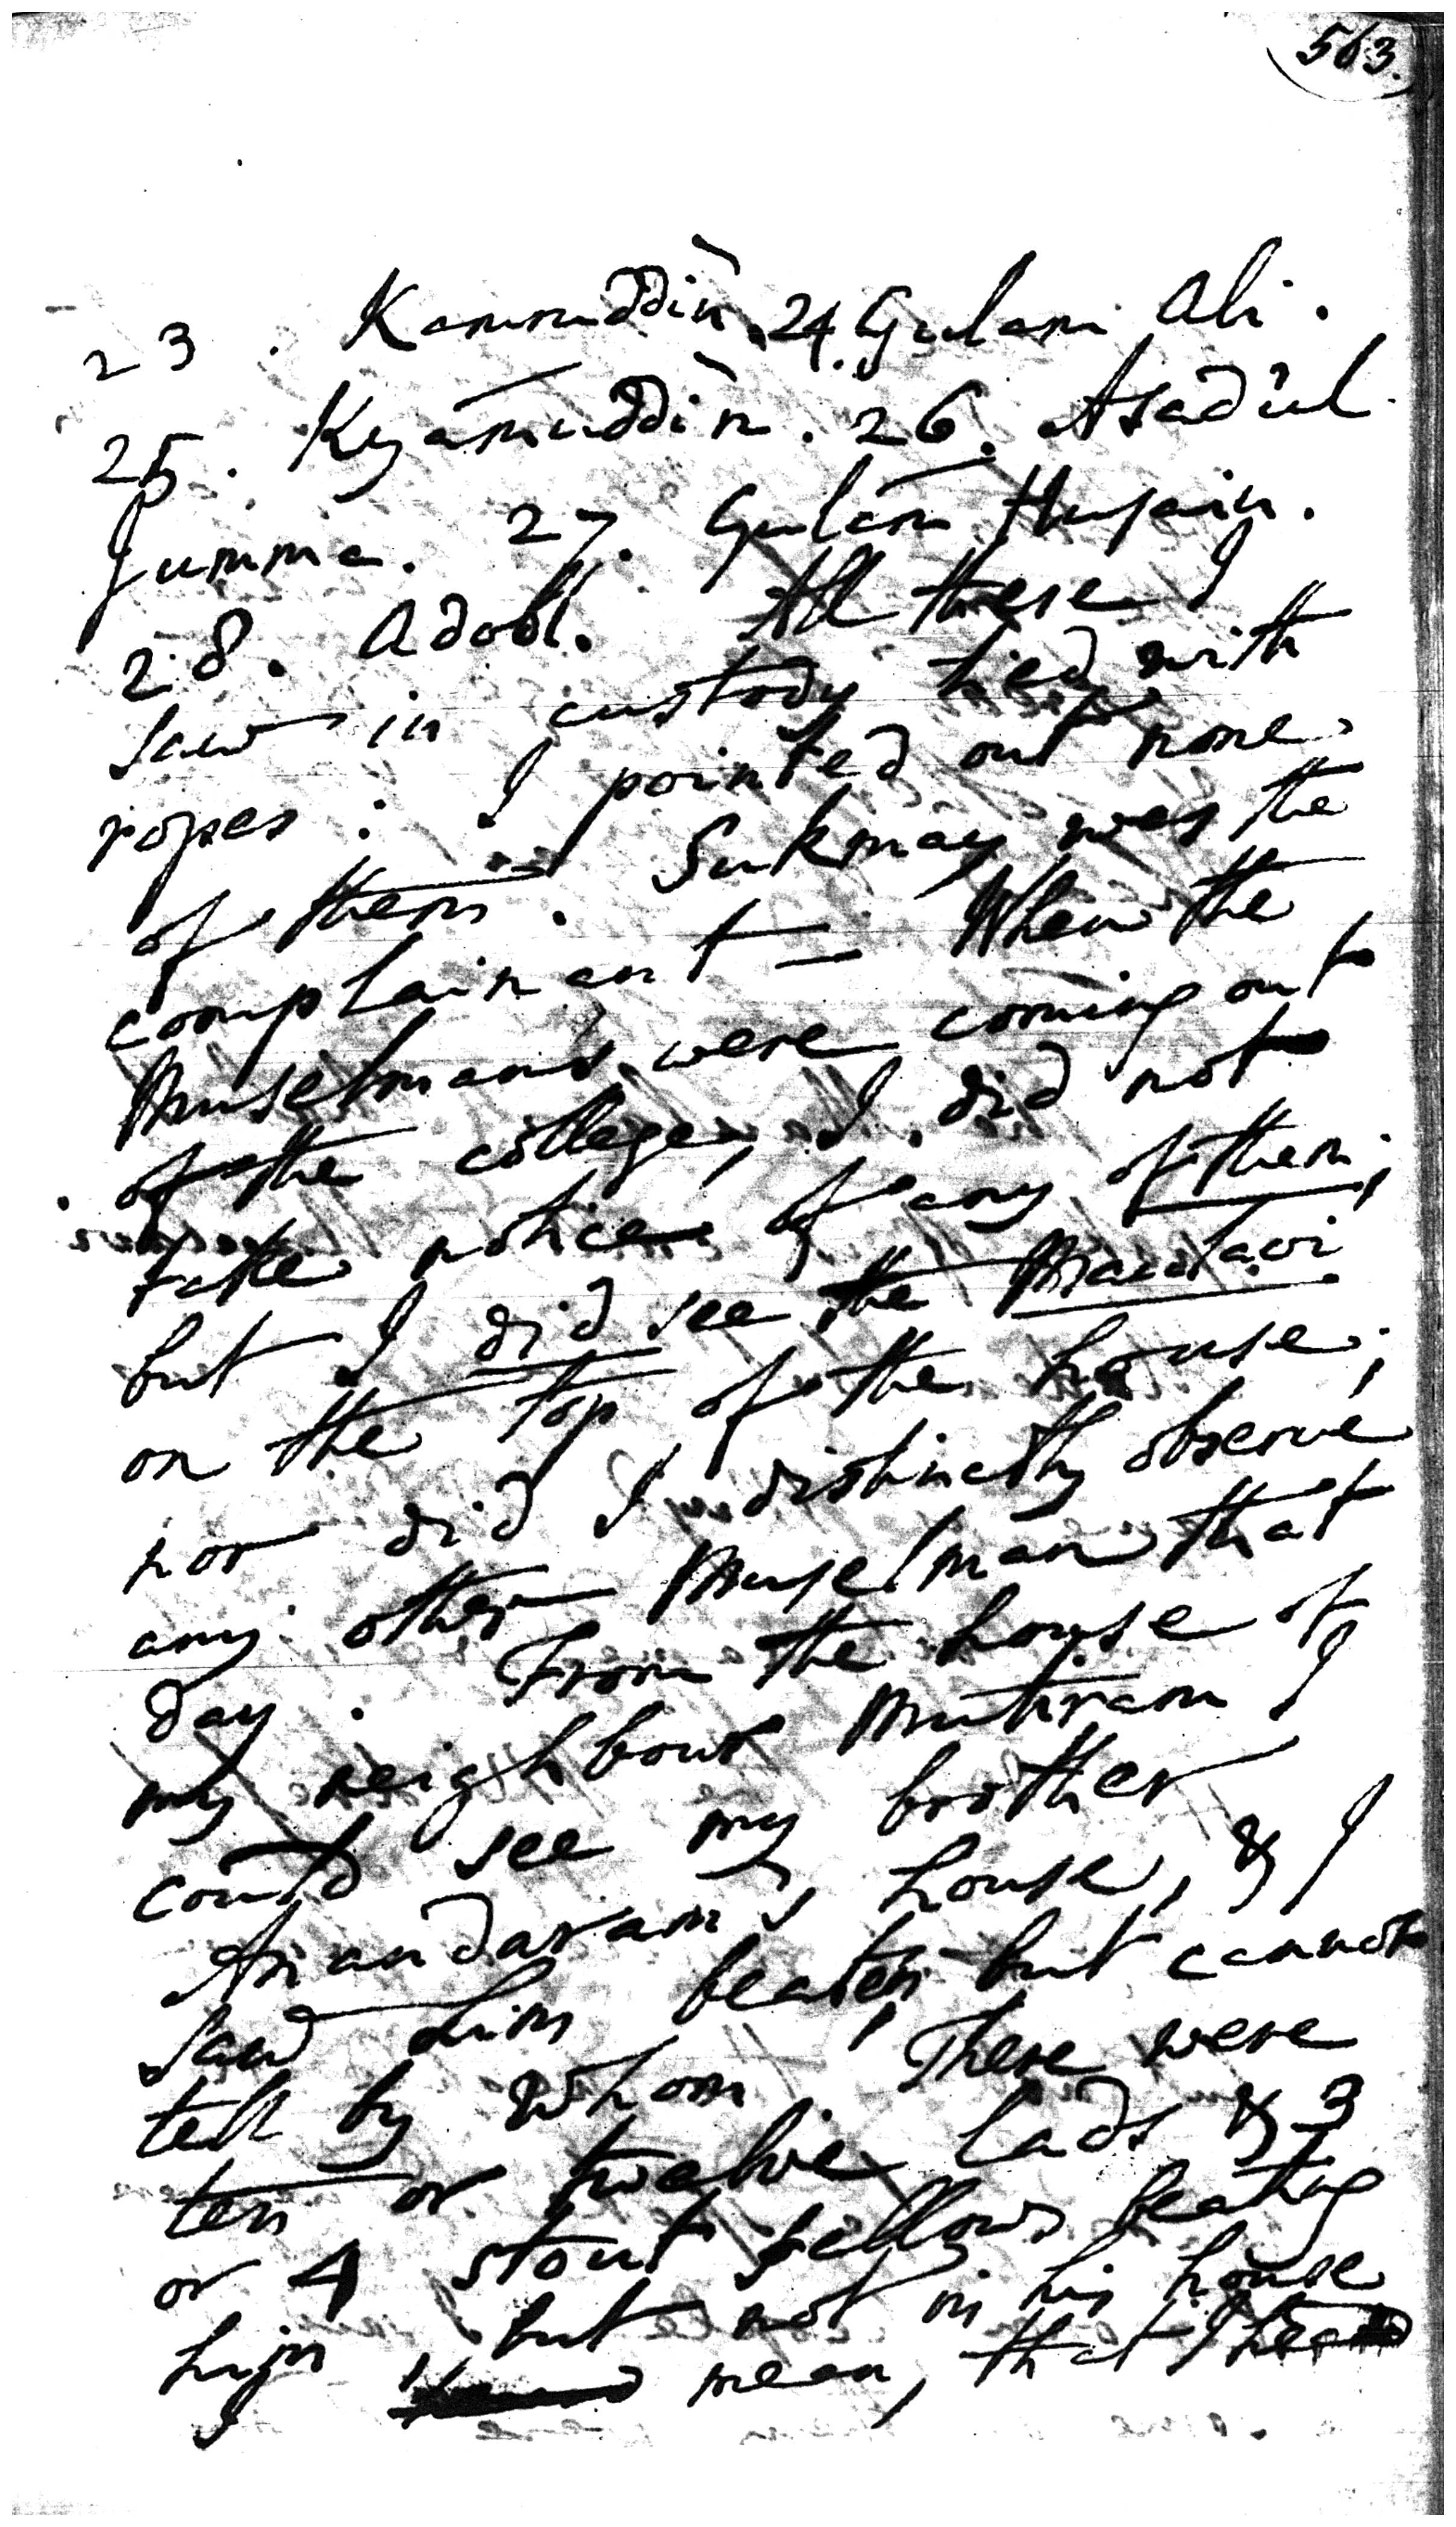 563.
23. Kamruddìn. 24. Gulam Ali.
25. Kyāmuddìn. 26. Asadùl
Jumma. 27. Gulām Husain.
28. Adobl. All these I
saw in custody tied with
ropes: I pointed out none
of them. Sukmay was the
complainant — When the
Muselmans were coming out
of the college, I did not
take notice of any of them;
but I did see the Maulavi
on the top of the house;
nor did I distinctly observe
any other Muselman that
day. From the house of
my neighbour Mutiram I
could see my brother
Anandaram's house, & I
saw him beaten, but cannot
tell by whom. There were
ten or twelve lads & 3
or 4 stout fellows beating
him, but not in his house
I mean, that I